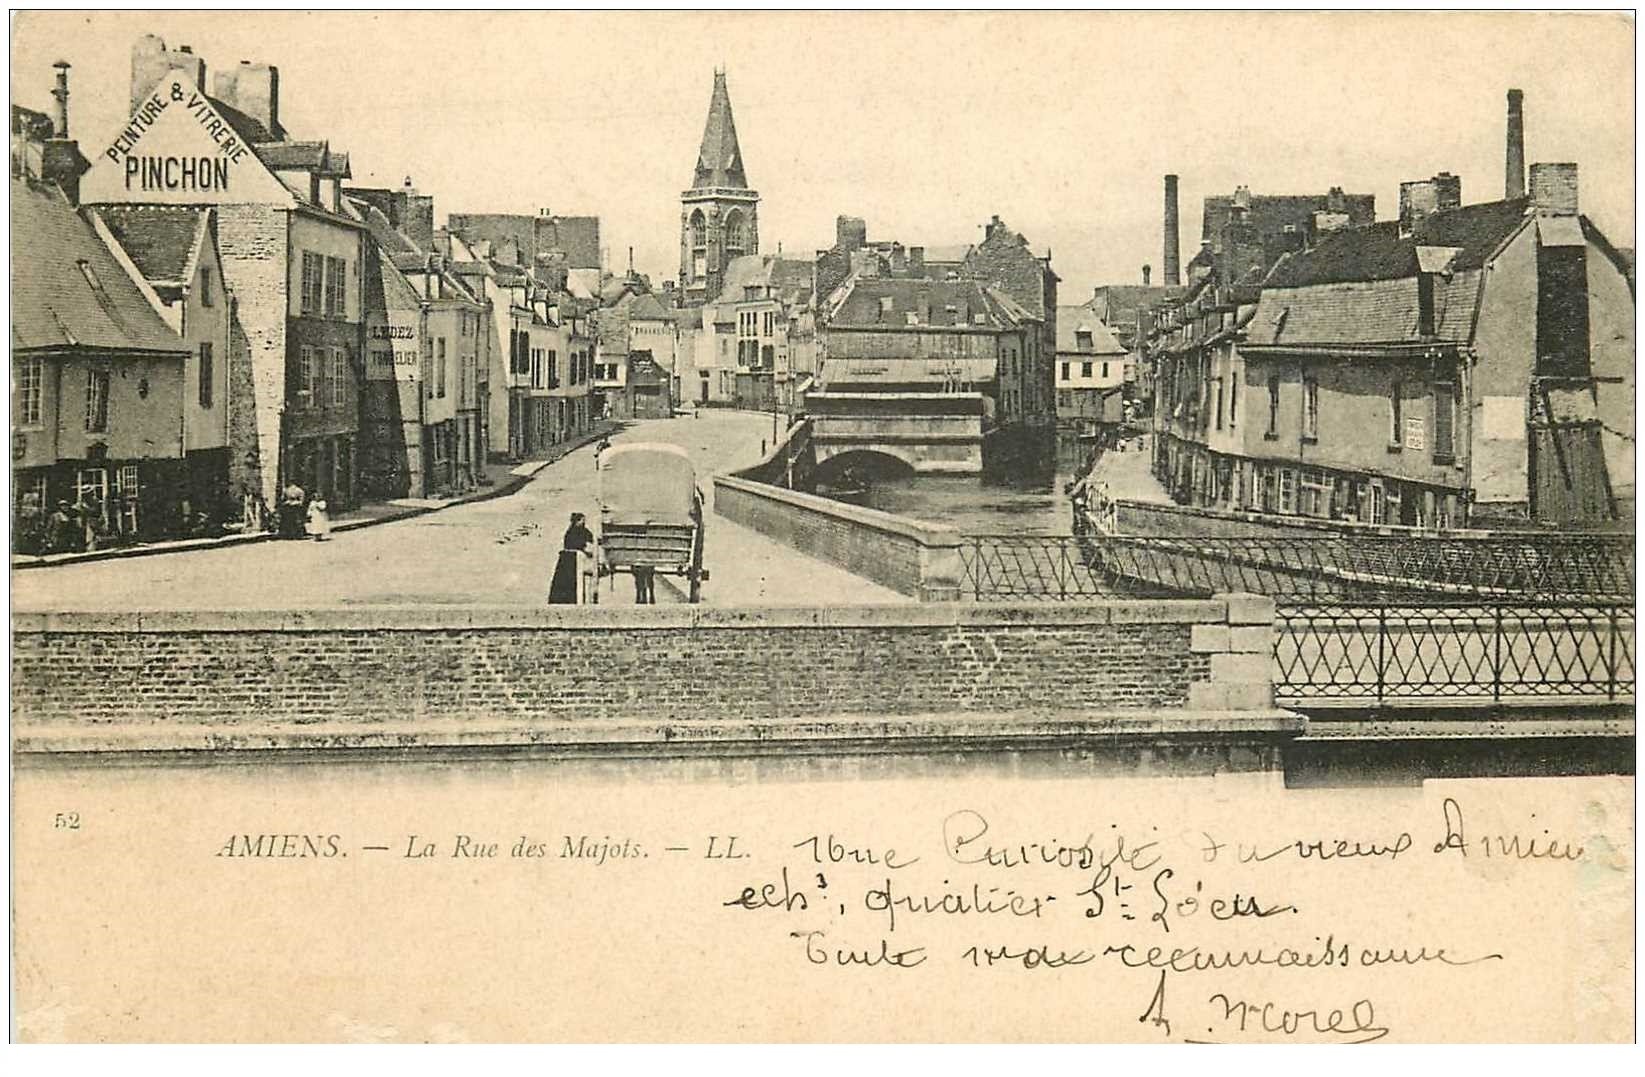 PEINTURE & VITRERIE
PINCHON
TONNELIER
52
AMIENS. — La Rue des Majots. — LL.
Une Curiosité du vieux Amien
quartier St Leu.
Toute ma reconnaissance
A Morel